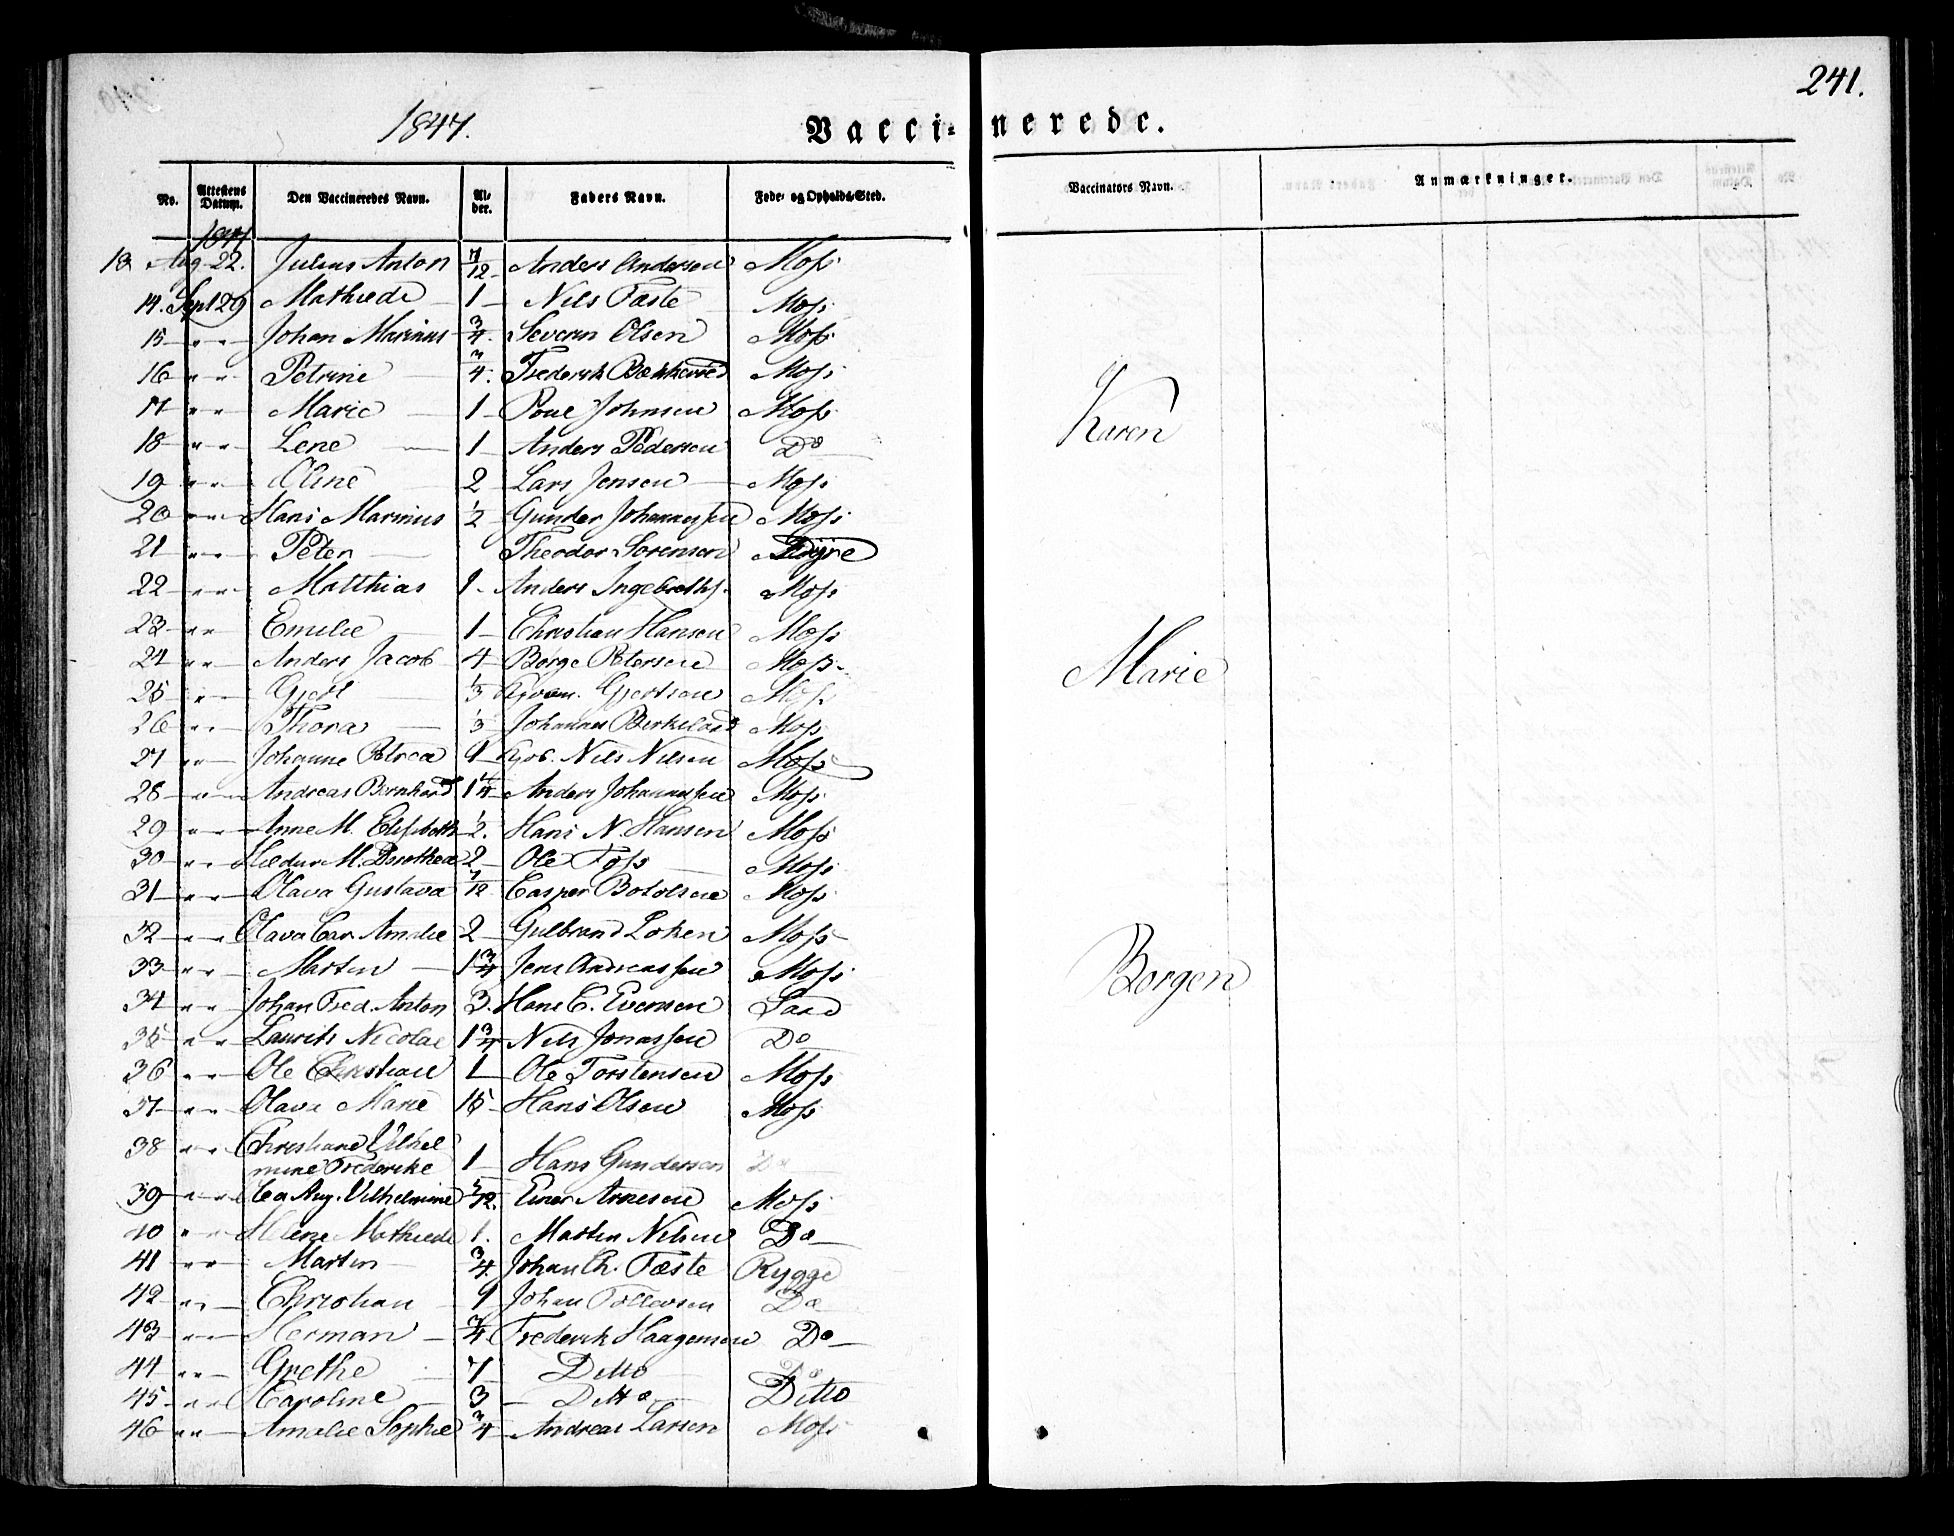 241.
1847.
Vacci-nerede.
No. Attestens Datum. Den Vaccineredes Navn. Al-der. Faders Navn. Føde- og Opholds-Sted. Vaccinators Navn. Anmærkninger.
1847
13 Aug 22. Julius Anton 7/12 Anders Andersen Moss
14. Sept 29 Mathilde 1 Nils Fæste Moss
15 " " Johan Marinus 3/4 Severin Olsen Moss
16 " " Petrine 3/4 Frederik Moss
17 " " Marie 1 Poul Johnsen Moss
18 " " Lene 1 Anders Pedersen Do
19 " " Oline 2 Lars Jensen Moss
20 " " Hans Marinus 1/2 Gunder Johannessen Moss
21 " " Peter Theodor Sorensen
22 " " Matthias 1 Anders Ingebrethss. Moss
23 " " Emilie 1 Christian Hansen Moss
24 " " Anders Jacob 4 Børge Petersen Moss
25 " " Gjert 1/3 Gjertsen Moss
26 " " Thora 1/3 Johannes Moss
27 " " Johanne Petrea 9 Nils Nilsen Moss
28 " " Andreas Bernhard 1 1/4 Anders Johannessen Moss
29 " " Anne M. Elisabeth 1/2. Hans N. Hansen Moss
30 " " M. Dorothea 2 Ole Foss Moss
31 " " Olava Gustava 7/12 Casper Bololsen Moss
32 " " Olava Car. Amalie 2 Gulbrand Loken Moss
33 " " Martin 1 3/4 Jens Andreassen Moss
34 " " Johan Fred. Anton 3. Hans C. Evensen Sand
35 " " Laurits Nicolai 1 3/4 Nils Jonassen Do
36 " " Ole Christian 1 Ole Torstensen Moss
37 " " Olava Marie 15 Hans Olsen Moss
38 " " Christiane Vilhel
mine Frederike 1 Hans Gundersen Do
39 " " Aug. Vilhelmine 5/12. Einer Arnesen Moss
40 " " Helene Mathilde 1. Martin Nilsen Do
41 " " Martin 3/4 Johan Ch. Fæste Rygge
42 " " Christian 9 Johan Tollevsen Do
43 " " Herman 3/4 Frederik Haagensen Do
44 " " Grethe 7 Ditto Do
45 " " Karoline 3 Ditto Ditto
46 " " Amalie Sophie 3/4 Andreas Larsen Moss
Karen
Marie
Borgen